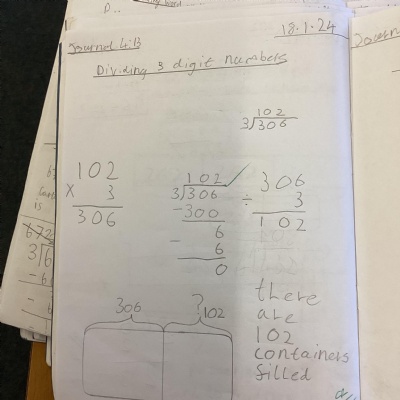 18.1.24
Journal 4.13
Dividing 3 digit numbers
102
3)306
102
x 3
306
102 ✓
3)306
-300
6
- 6
0
306
÷ 3
102
306
?102
there
are
102
containers
filled